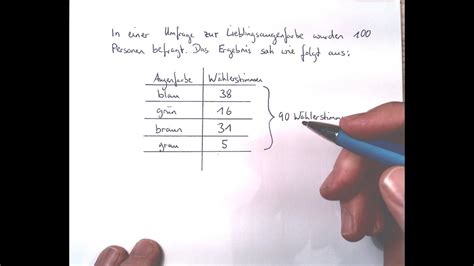 In einer Umfrage zur Lieblingsaugenfarbe wurden 100
Personen befragt. Das Ergebnis sah wie folgt aus:
Augenfarbe Wählerstimmen
blau 38
grün 16
braun 31
grau 5
90 Wählerstimm